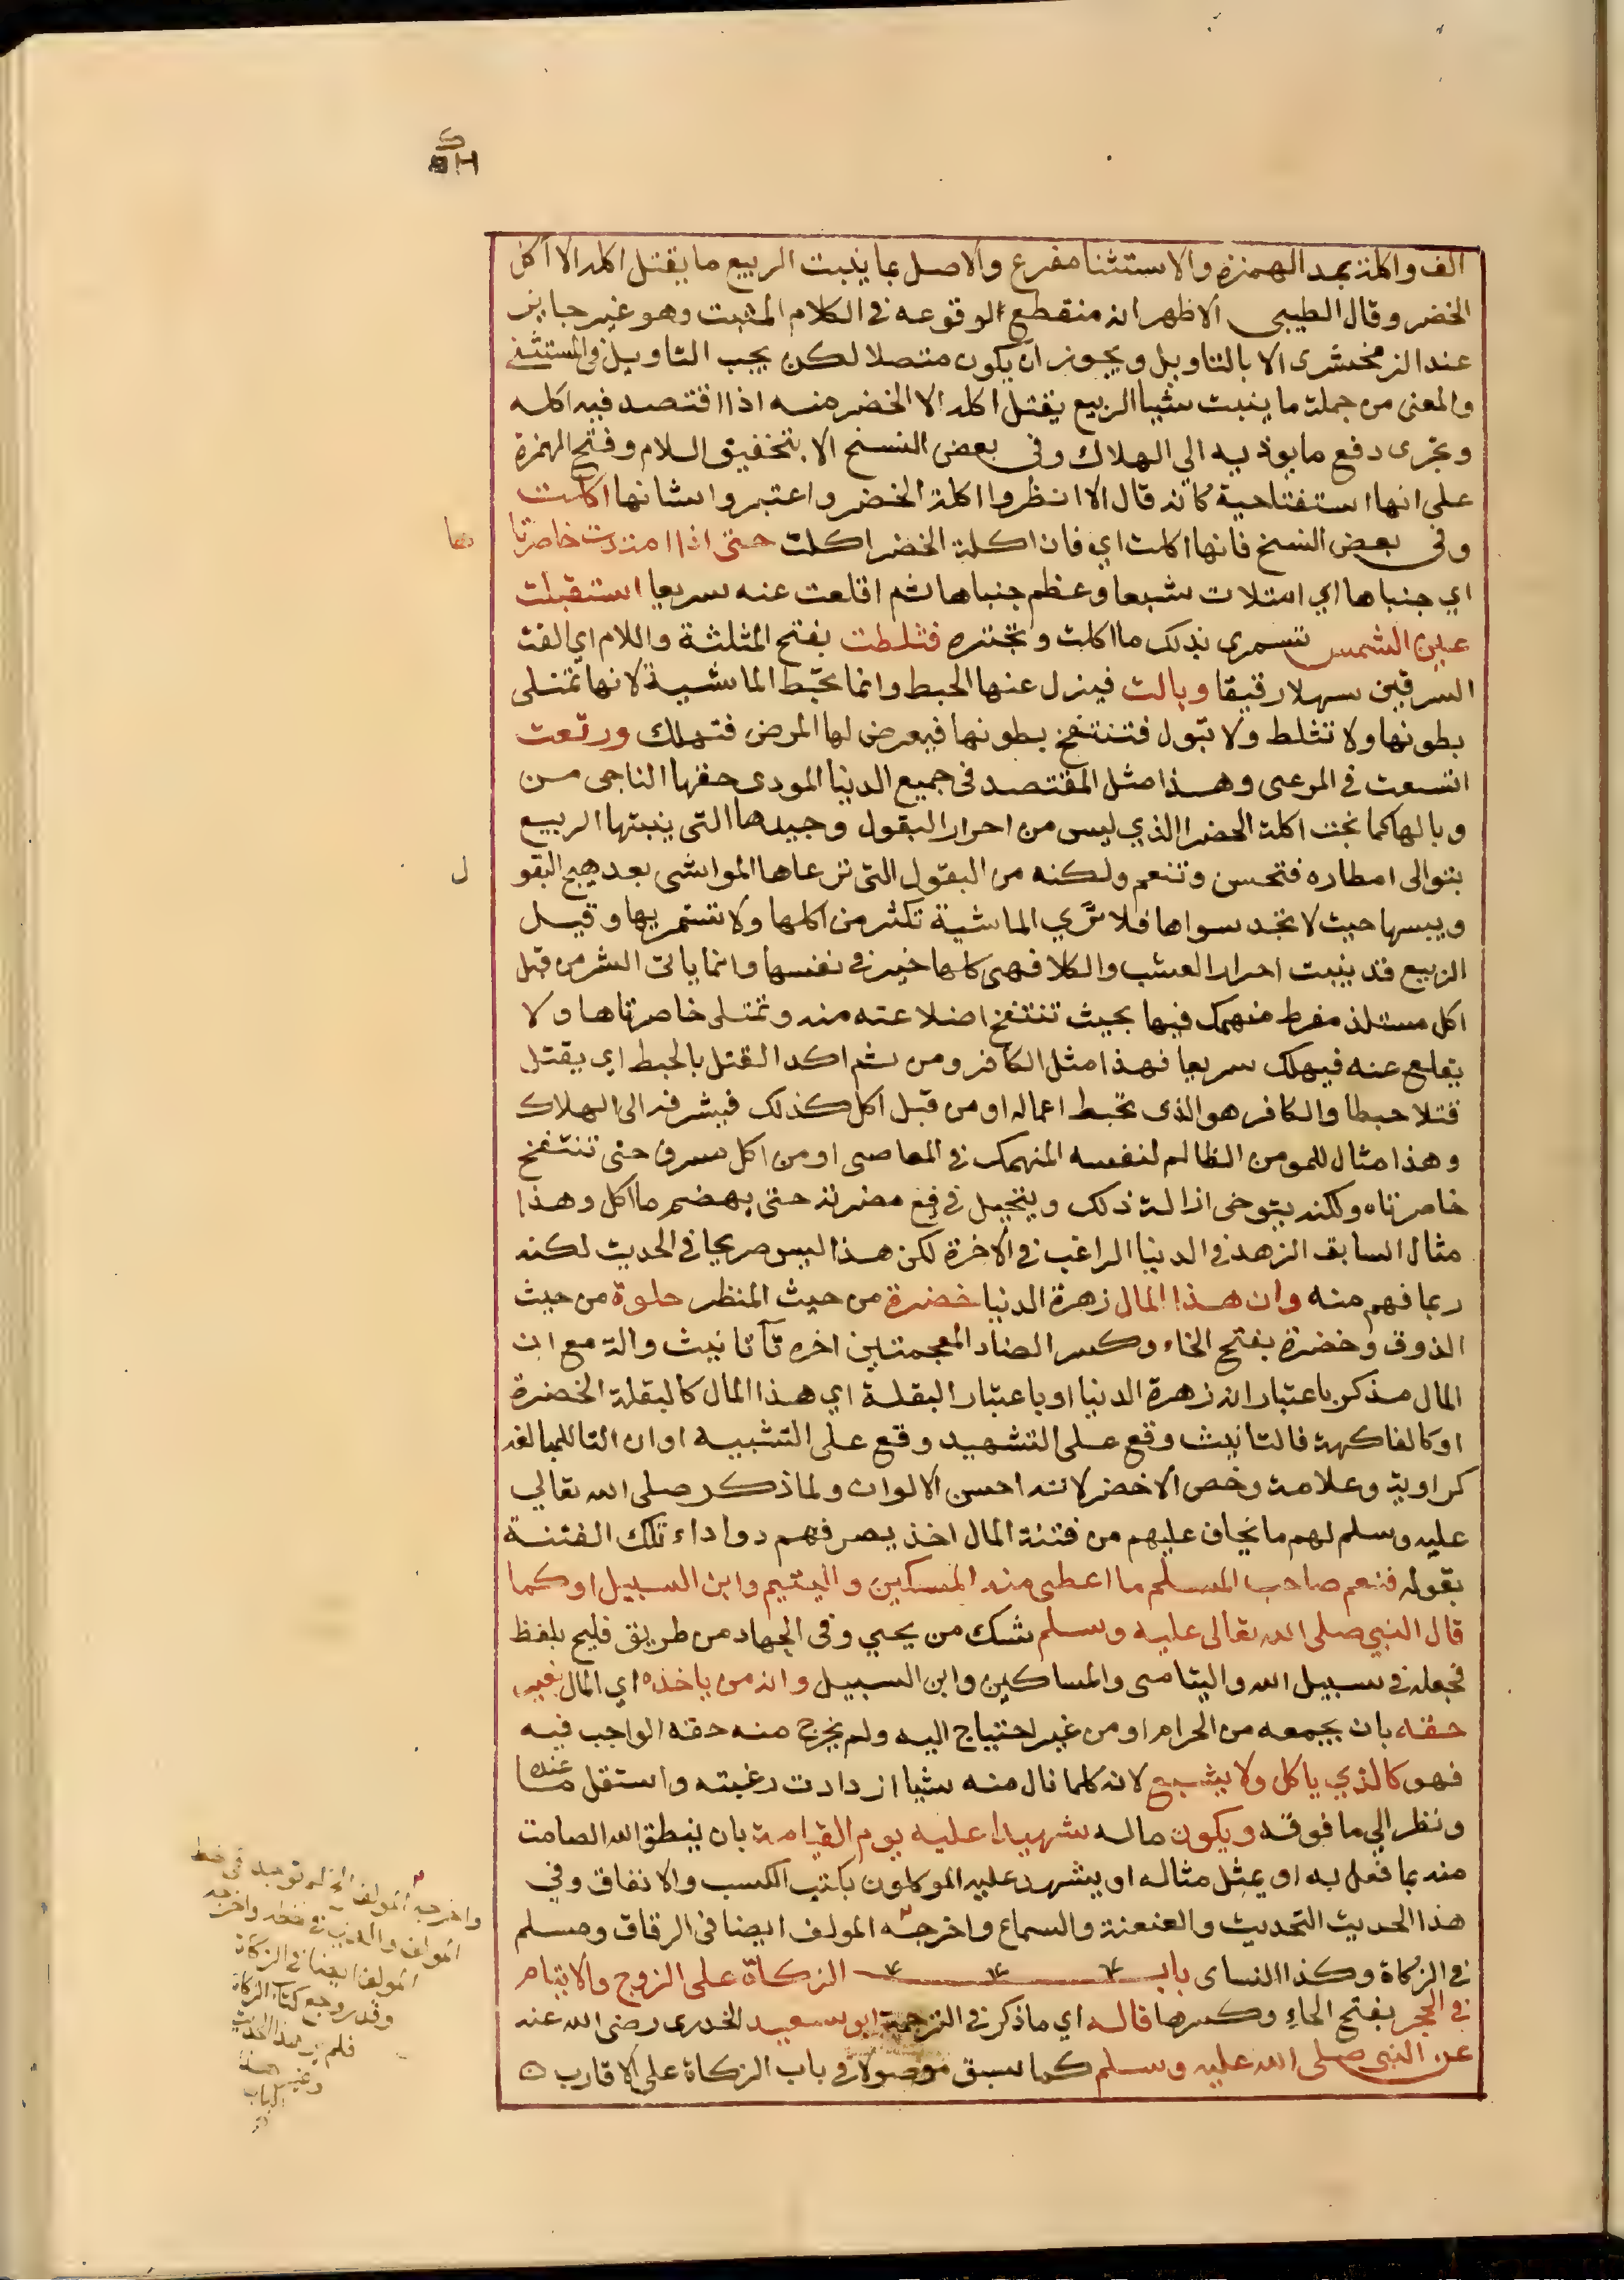 الف واكلة بمد الهمزة والاستثنا مفرغ والاصل بما ينبت الربيع ما يقتل اكله الا اكل
الخضر وقال الطيبى الاظهر انه منقطع لوقوعه في الكلام المثبت وهو غير جايز
عند الزمخشرى الا بالتاويل ويجوز ان يكون متصلا لكن يجب التاويل في المستثنى
والمعنى من جملة ما ينبت شيا الربيع يقتل اكله الا الخضر منه اذا اقتصد فيه اكله
وتحرى دفع ما يوذيه الى الهلاك وفى بعض النسخ الا بتخفيف اللام وفتح الهمزة
على انها استفتاحية كانه قال الا انظروا اكلة الخضر واعتبروا شانها اكلت
وفى بعض النسخ فانها اكلت اي فان اكلة الخضر اكلت حتى اذا امتدت خاصرتا
ها
اي جنباها اي امتلات شبعا وعظم جنباها ثم اقلعت عنه سريعا استقبلت
عين الشمس تسمرى بذلك ما اكلت وتجتره فثلطت بفتح المثلثة واللام اي القت
السرقين سهلا رقيقا وبالت فيزل عنها الحبط وانما تحبط الماشية لانها تمتلى
بطونها ولا تثلط ولا تبول فتنتفخ بطونها فيعرض لها المرض فتهلك ورتعت
اتسعت في المرعى وهذا مثل المقتصد فى جميع الدنيا المودى حقها الناجى من
وبالها كما نجت اكلة الخضر الذي ليس من احرار البقول وجيدها التى ينبتها الربيع
بتوالى امطاره فتحسن وتنعم ولكنه من البقول التى ترعاها المواشى بعد هيج البقو
ل
ويبسها حيث لا تجد سواها فلا تري الماشية تكثر من اكلها ولا تستمريها وقيل
الربيع قد ينبت احرار العشب والكلا فهى كلها خير في نفسها وانما ياتى الشر من قبل
اكل مستلذ مفرط منهمك فيها بحيث تنتفخ اضلاعته منه وتمتلى خاصرتاها ولا
يقلع عنه فيهلك سريعا فهذا مثل الكافر ومن ثم اكد القتل بالحبط اي يقتل
قتلا حبطا والكافر هو الذى تحبط اعماله او من قبل اكل كذلك فيشرفه الى الهلاك
وهذا مثال للمومن الظالم لنفسه المنهمك في المعاصى او من اكل مسرف حتى تنتفخ
خاصرتاه ولكنه يتوخى ازالة ذلك ويتحيل في دفع مضرته حتى يهضم ما اكل وهذا
مثال السابق الزهد في الدنيا الراغب في الاخرة لكن هذا ليس صريحا في الحديث لكنه
ربما فهم منه وان هذا المال زهرة الدنيا خضرة من حيث المنظر حلوة من حيث
الذوق وخضرة بفتح الخاء وكسر الضاد المعجمتين اخره تا تانيث واله مع ان
المال مذكر باعتبار انه زهرة الدنيا او باعتبار البقلة اي هذا المال كالبقلة الخضرة
او كالفاكهة فالتانيث وقع على التشهيد وقع على التشبيه او ان التا للمبالغه
كراوية وعلامة وخص الاخضر لانه احسن الالوان ولما ذكر صلى الله تعالي
عليه وسلم لهم ما يخاف عليهم من فتنة المال اخذ يصرفهم دوا داء تلك الفتنة
بقوله فنعم صاحب المسلم ما اعطى منه المسكين واليتيم وابن السبيل او كما
قال النبي صلى الله تعالى عليه وسلم شك من يحيي وفى الجهاد من طريق فليح بلفظ
فجعله في سبيل الله واليتامى والمساكين وابن السبيل وانه من ياخذه اي المال بغير
حقه بان يجمعه من الحرام او من غير احتياج اليه ولم يخرج منه حقه الواجب فيه
فهو كالذي ياكل ولا يشبع لانه كلما نال منه شيا ازدادت رغبته واستقل ما عنده
ونظر الي ما فوقه ويكون ماله شهيدا عليه يوم القيامة بان ينطق الله الصامت
منه بما فعل به او يمثل مثاله او يشهد عليه الموكلون بكتب الكسب والانفاق وفي
هذا الحديث التحديث والعنعنة والسماع واخرجه المولف ايضا فى الرقاق ومسلم
في الزكاة وكذا النساى باب الزكاة على الزوج والايتام
في الحجر بفتح الحاء وكسرها قاله اي ما ذكر في الترجمة ابو سعيد الخدرى رضى الله عنه
عن النبي صلى الله عليه وسلم كما سبق موصولا في باب الزكاة على الاقارب
واخرجه المولف الخ لم توجد فى خط
المولف والذي في خطه واخرجه
المولف ايضا في الزكاة
وقد روجع كتاب الزكاة
فلم ير هذا الحديث
الباب